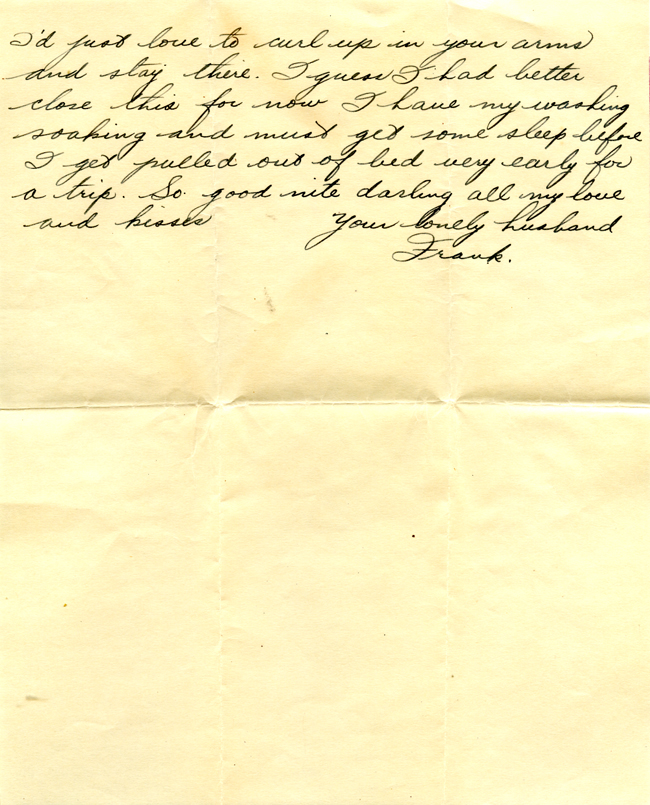 I'd just love to curl up in your arms
and stay there. I guess I had better
close this for now I have my washing
soaking and must get some sleep before
I get pulled out of bed very early for
a trip. So good nite darling all my love
and kisses Your lonely husband
Frank.